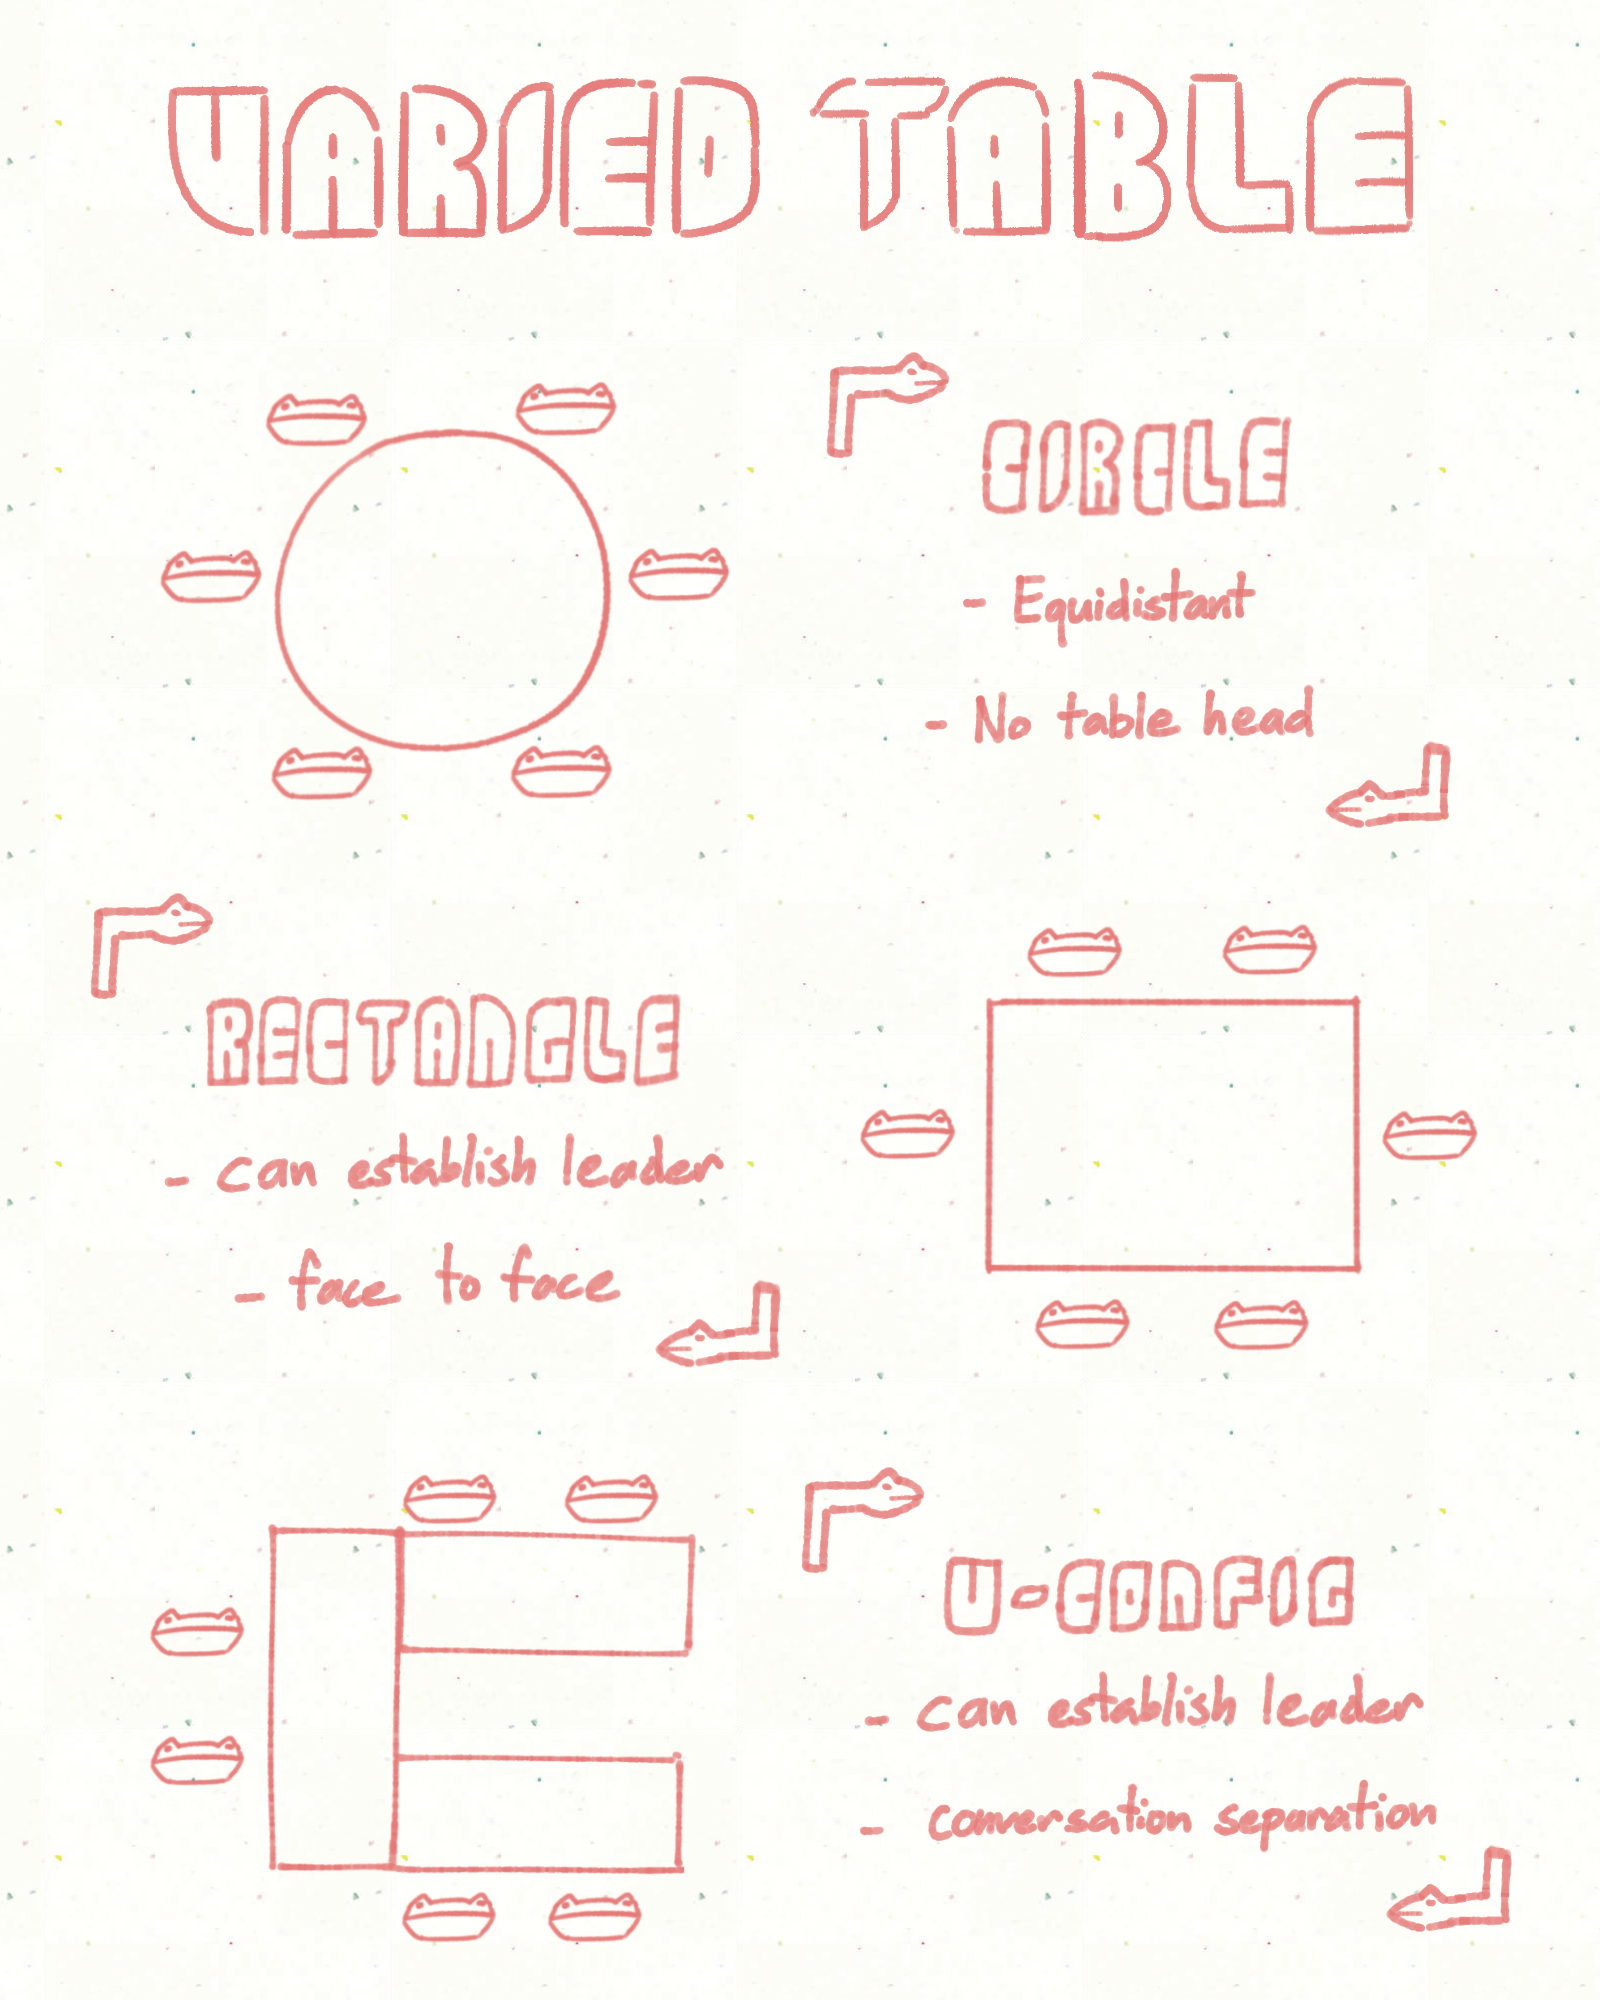 VARIED TABLE
CIRCLE
- Equidistant
- No table head
RECTANGLE
- can establish leader
- face to face
U-CONFIG
- can establish leader
- conversation separation